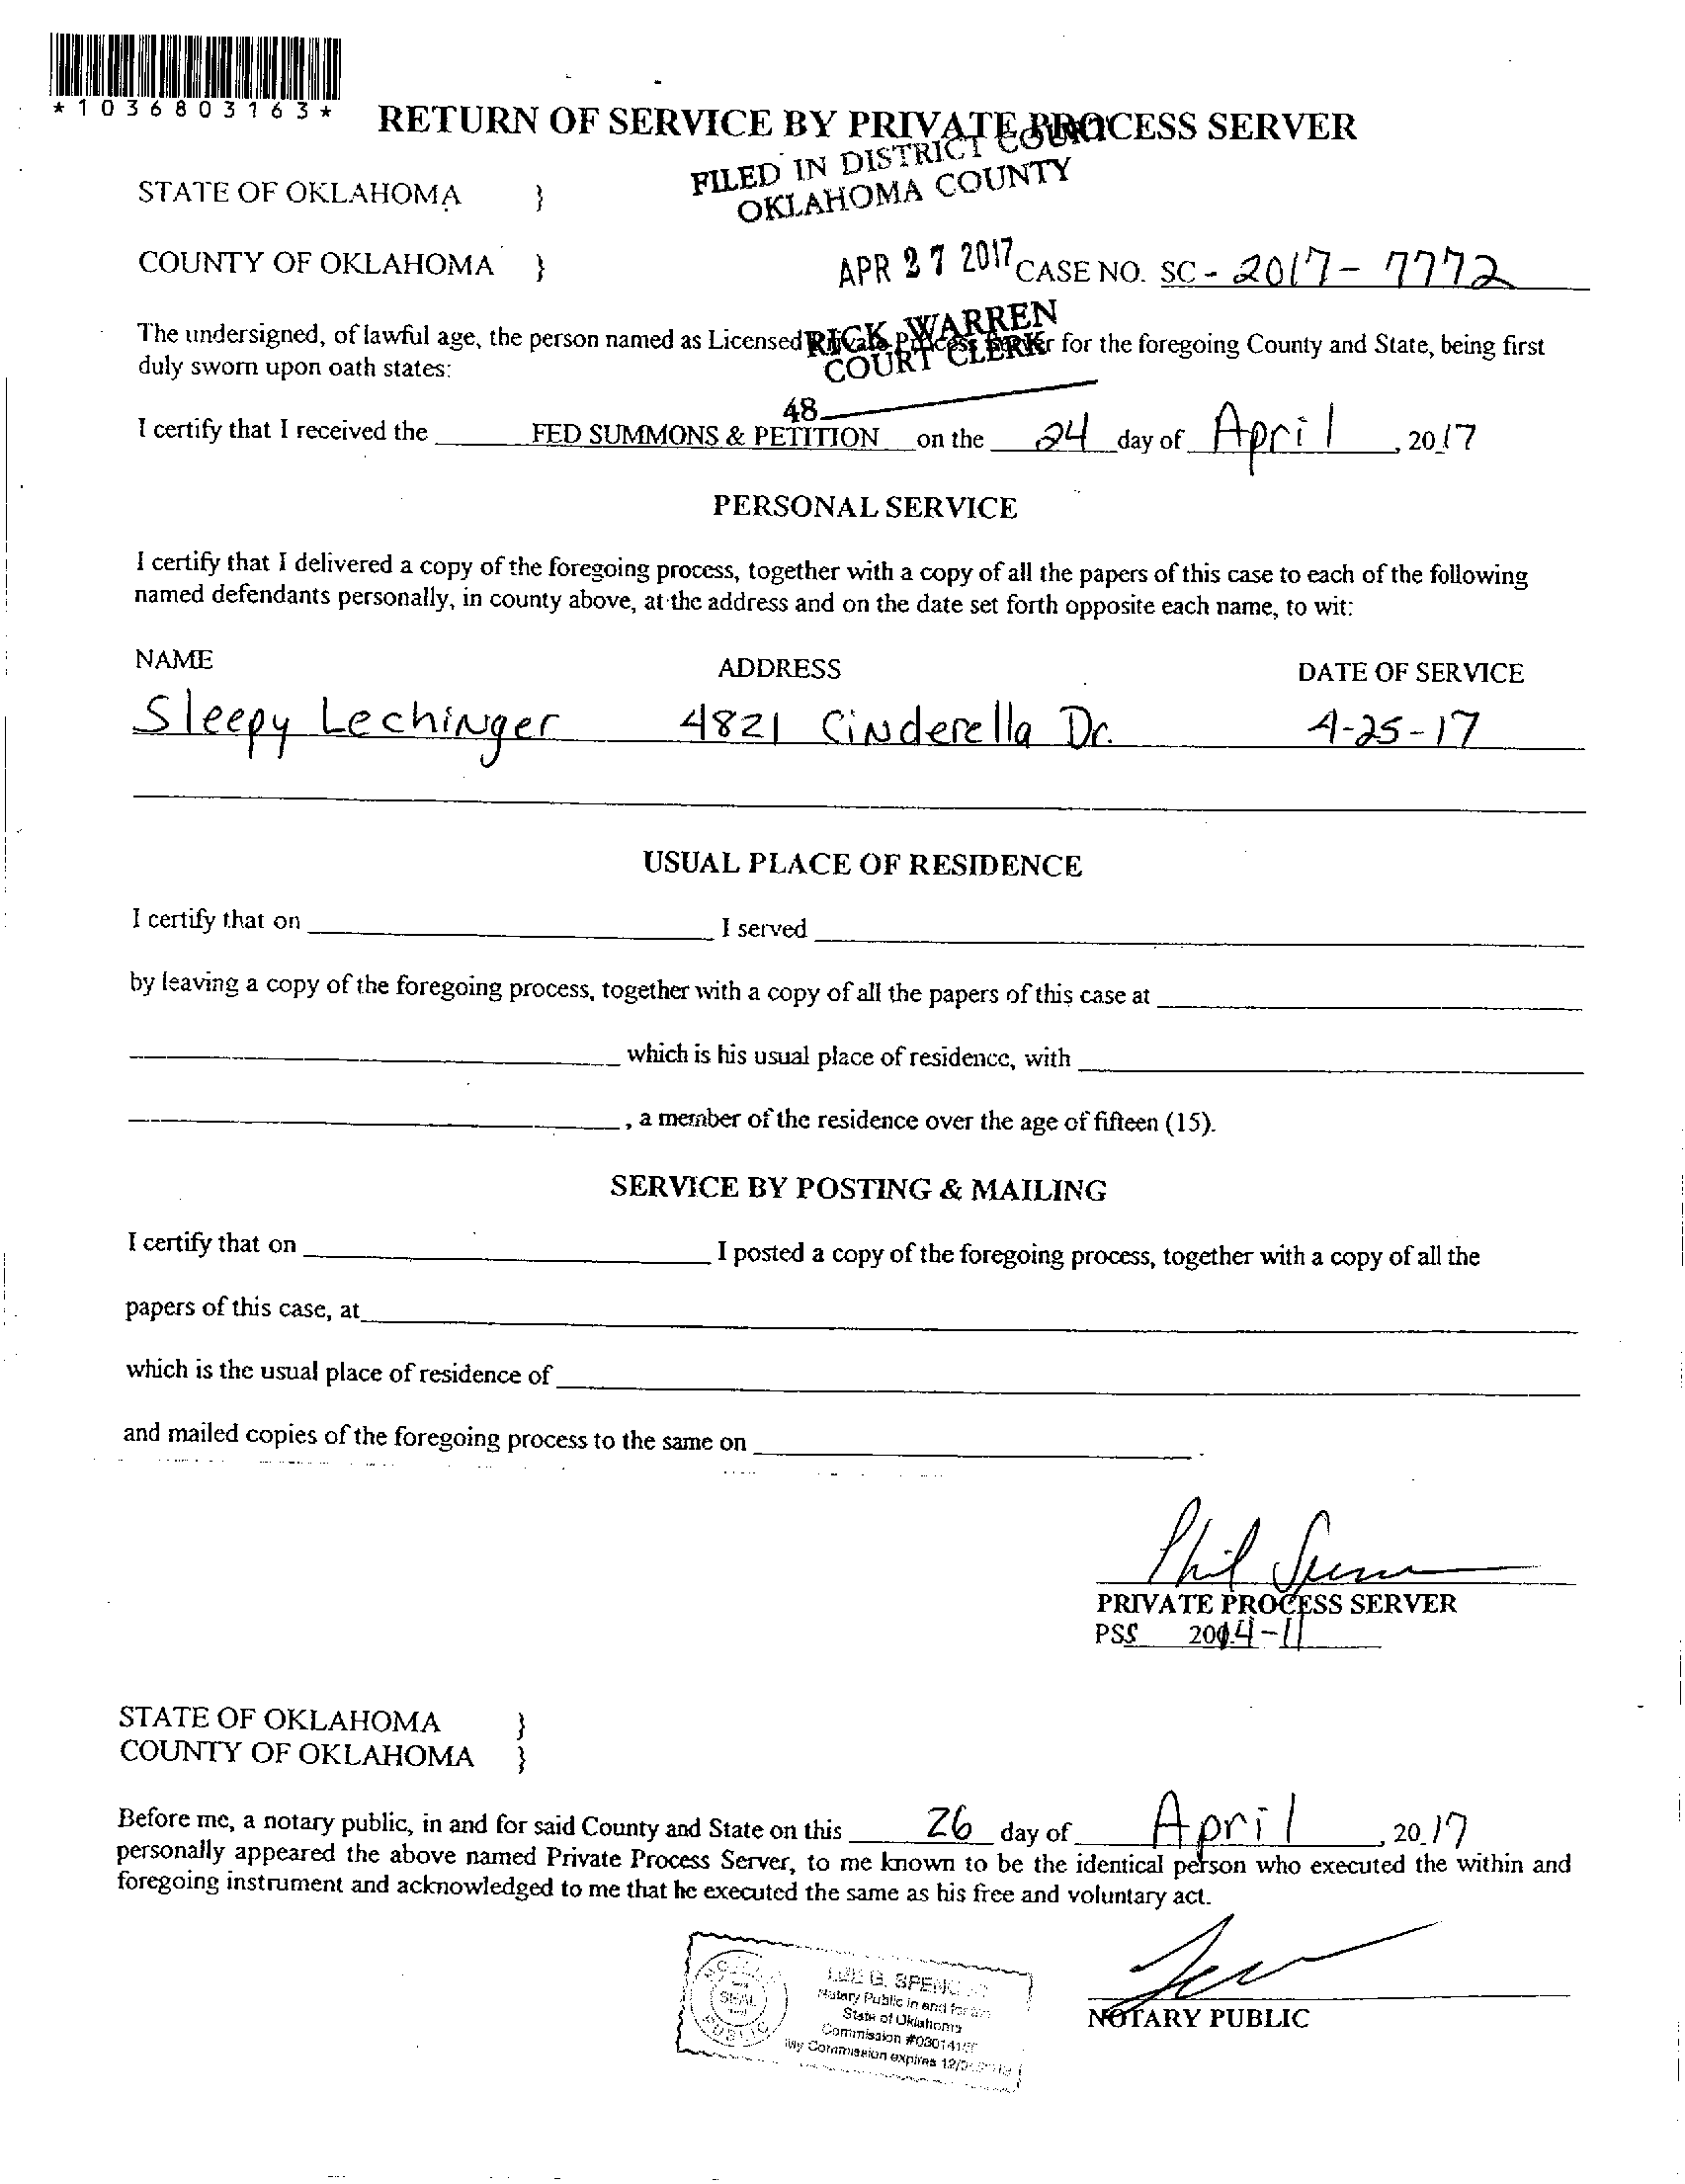 *1036803163*
RETURN OF SERVICE BY PRIVATE PROCESS SERVER
FILED IN DISTRICT COURT
OKLAHOMA COUNTY
STATE OF OKLAHOMA }
COUNTY OF OKLAHOMA }
APR 27 2017 CASE NO. SC - 2017 - 7772
RICK WARREN
COURT CLERK
The undersigned, of lawful age, the person named as Licensed Private Process Server for the foregoing County and State, being first
duly sworn upon oath states:
48
I certify that I received the FED SUMMONS & PETITION on the 24 day of April, 2017
PERSONAL SERVICE
I certify that I delivered a copy of the foregoing process, together with a copy of all the papers of this case to each of the following
named defendants personally, in county above, at the address and on the date set forth opposite each name, to wit:
NAME ADDRESS DATE OF SERVICE
Sleepy Lechinger 4821 Cinderella Dr. 4-25-17
USUAL PLACE OF RESIDENCE
I certify that on I served
by leaving a copy of the foregoing process, together with a copy of all the papers of this case at
which is his usual place of residence, with
, a member of the residence over the age of fifteen (15).
SERVICE BY POSTING & MAILING
I certify that on I posted a copy of the foregoing process, together with a copy of all the
papers of this case, at
which is the usual place of residence of
and mailed copies of the foregoing process to the same on .
Phil
PRIVATE PROCESS SERVER
PSS 2014-11
STATE OF OKLAHOMA }
COUNTY OF OKLAHOMA }
Before me, a notary public, in and for said County and State on this 26 day of April, 2017
personally appeared the above named Private Process Server, to me known to be the identical person who executed the within and
foregoing instrument and acknowledged to me that he executed the same as his free and voluntary act.
SEAL
PUBLIC
G.
Notary Public in and for the
State of Oklahoma
Commission
My Commission expires
NOTARY PUBLIC